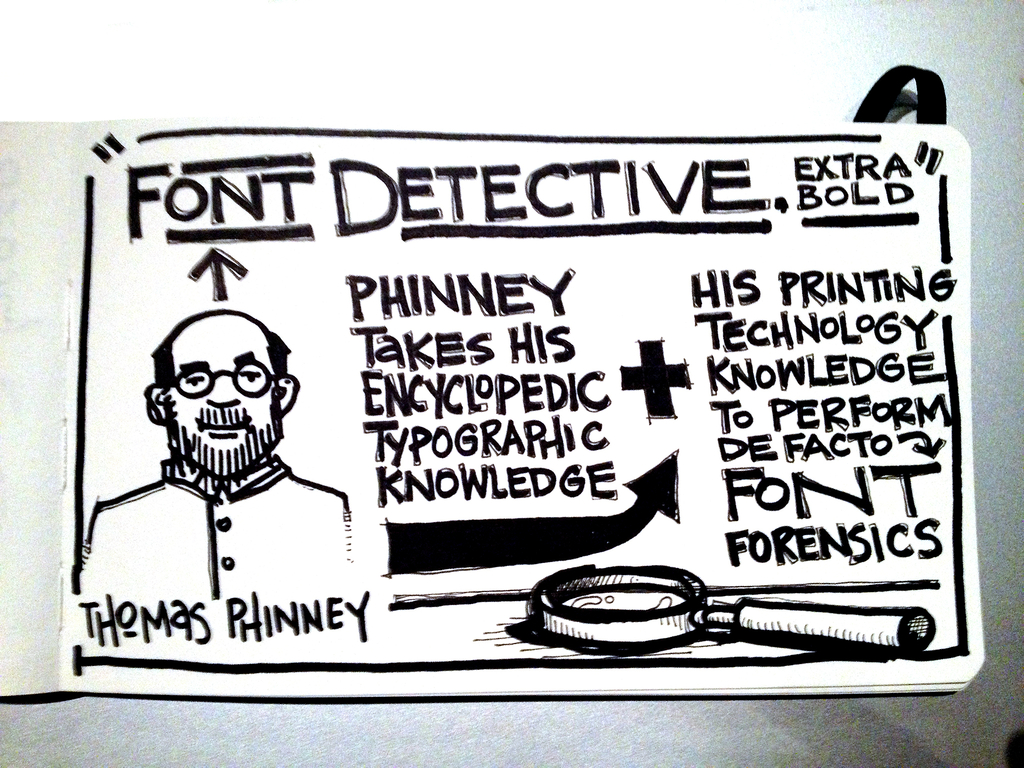 "FONT DETECTIVE. EXTRA BOLD"
PHINNEY
TAKES HIS
ENCYCLOPEDIC
TYPOGRAPHIC
KNOWLEDGE
+
HIS PRINTING
TECHNOLOGY
KNOWLEDGE
TO PERFORM
DE FACTO
FONT
FORENSICS
THOMAS PHINNEY